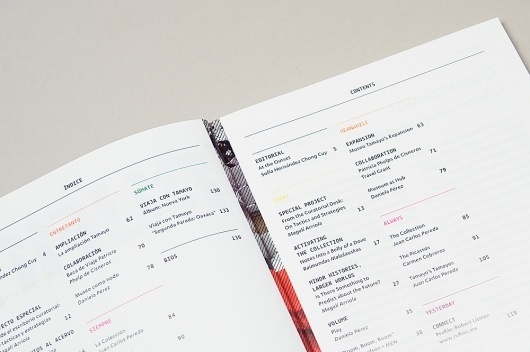 ÍNDICE
4
ENTRETANTO
AMPLIACIÓN
La ampliación Tamayo
62
COLABORACIÓN
Beca de Viaje Patricia
Phelp de Cisneros
70
Museo como nodo
Daniela Pérez
78
SIEMPRE
La Colección
Juan Carlos Pereda
84
90
12
SÚMATE
VIAJA CON TAMAYO
Álbum: Nueva York
130
Viaja con Tamayo
"Segunda Parada: Oaxaca"
131
BIOS
136
CONTENTS
EDITORIAL
As the Outset
Sofía Hernández Chong Cuy
5
SPECIAL PROJECT
From the Curatorial Desk:
On Tactics and Strategies
Magalí Arriola
13
ACTIVATING
THE COLLECTION
Notes into a Belly of a Dove
Raimundas Malašauskas
17
MINOR HISTORIES,
LARGER WORLDS
Is There Something to
Predict about the Future?
Magalí Arriola
27
VOLUME
Play
Daniela Pérez
35
"Boom, Boom, Boom"
38
MEANWHILE
EXPANSION
Museo Tamayo's Expansion
63
COLLABORATION
Patricia Phelps de Cisneros
Travel Grant
71
Museum as Hub
Daniela Pérez
79
ALWAYS
The Collection
Juan Carlos Pereda
85
The Picassos
Carmen Cebreros
91
Tamayo's Tamayos
Juan Carlos Pereda
105
YESTERDAY
CONNECT
Profile: Robert Littman
119